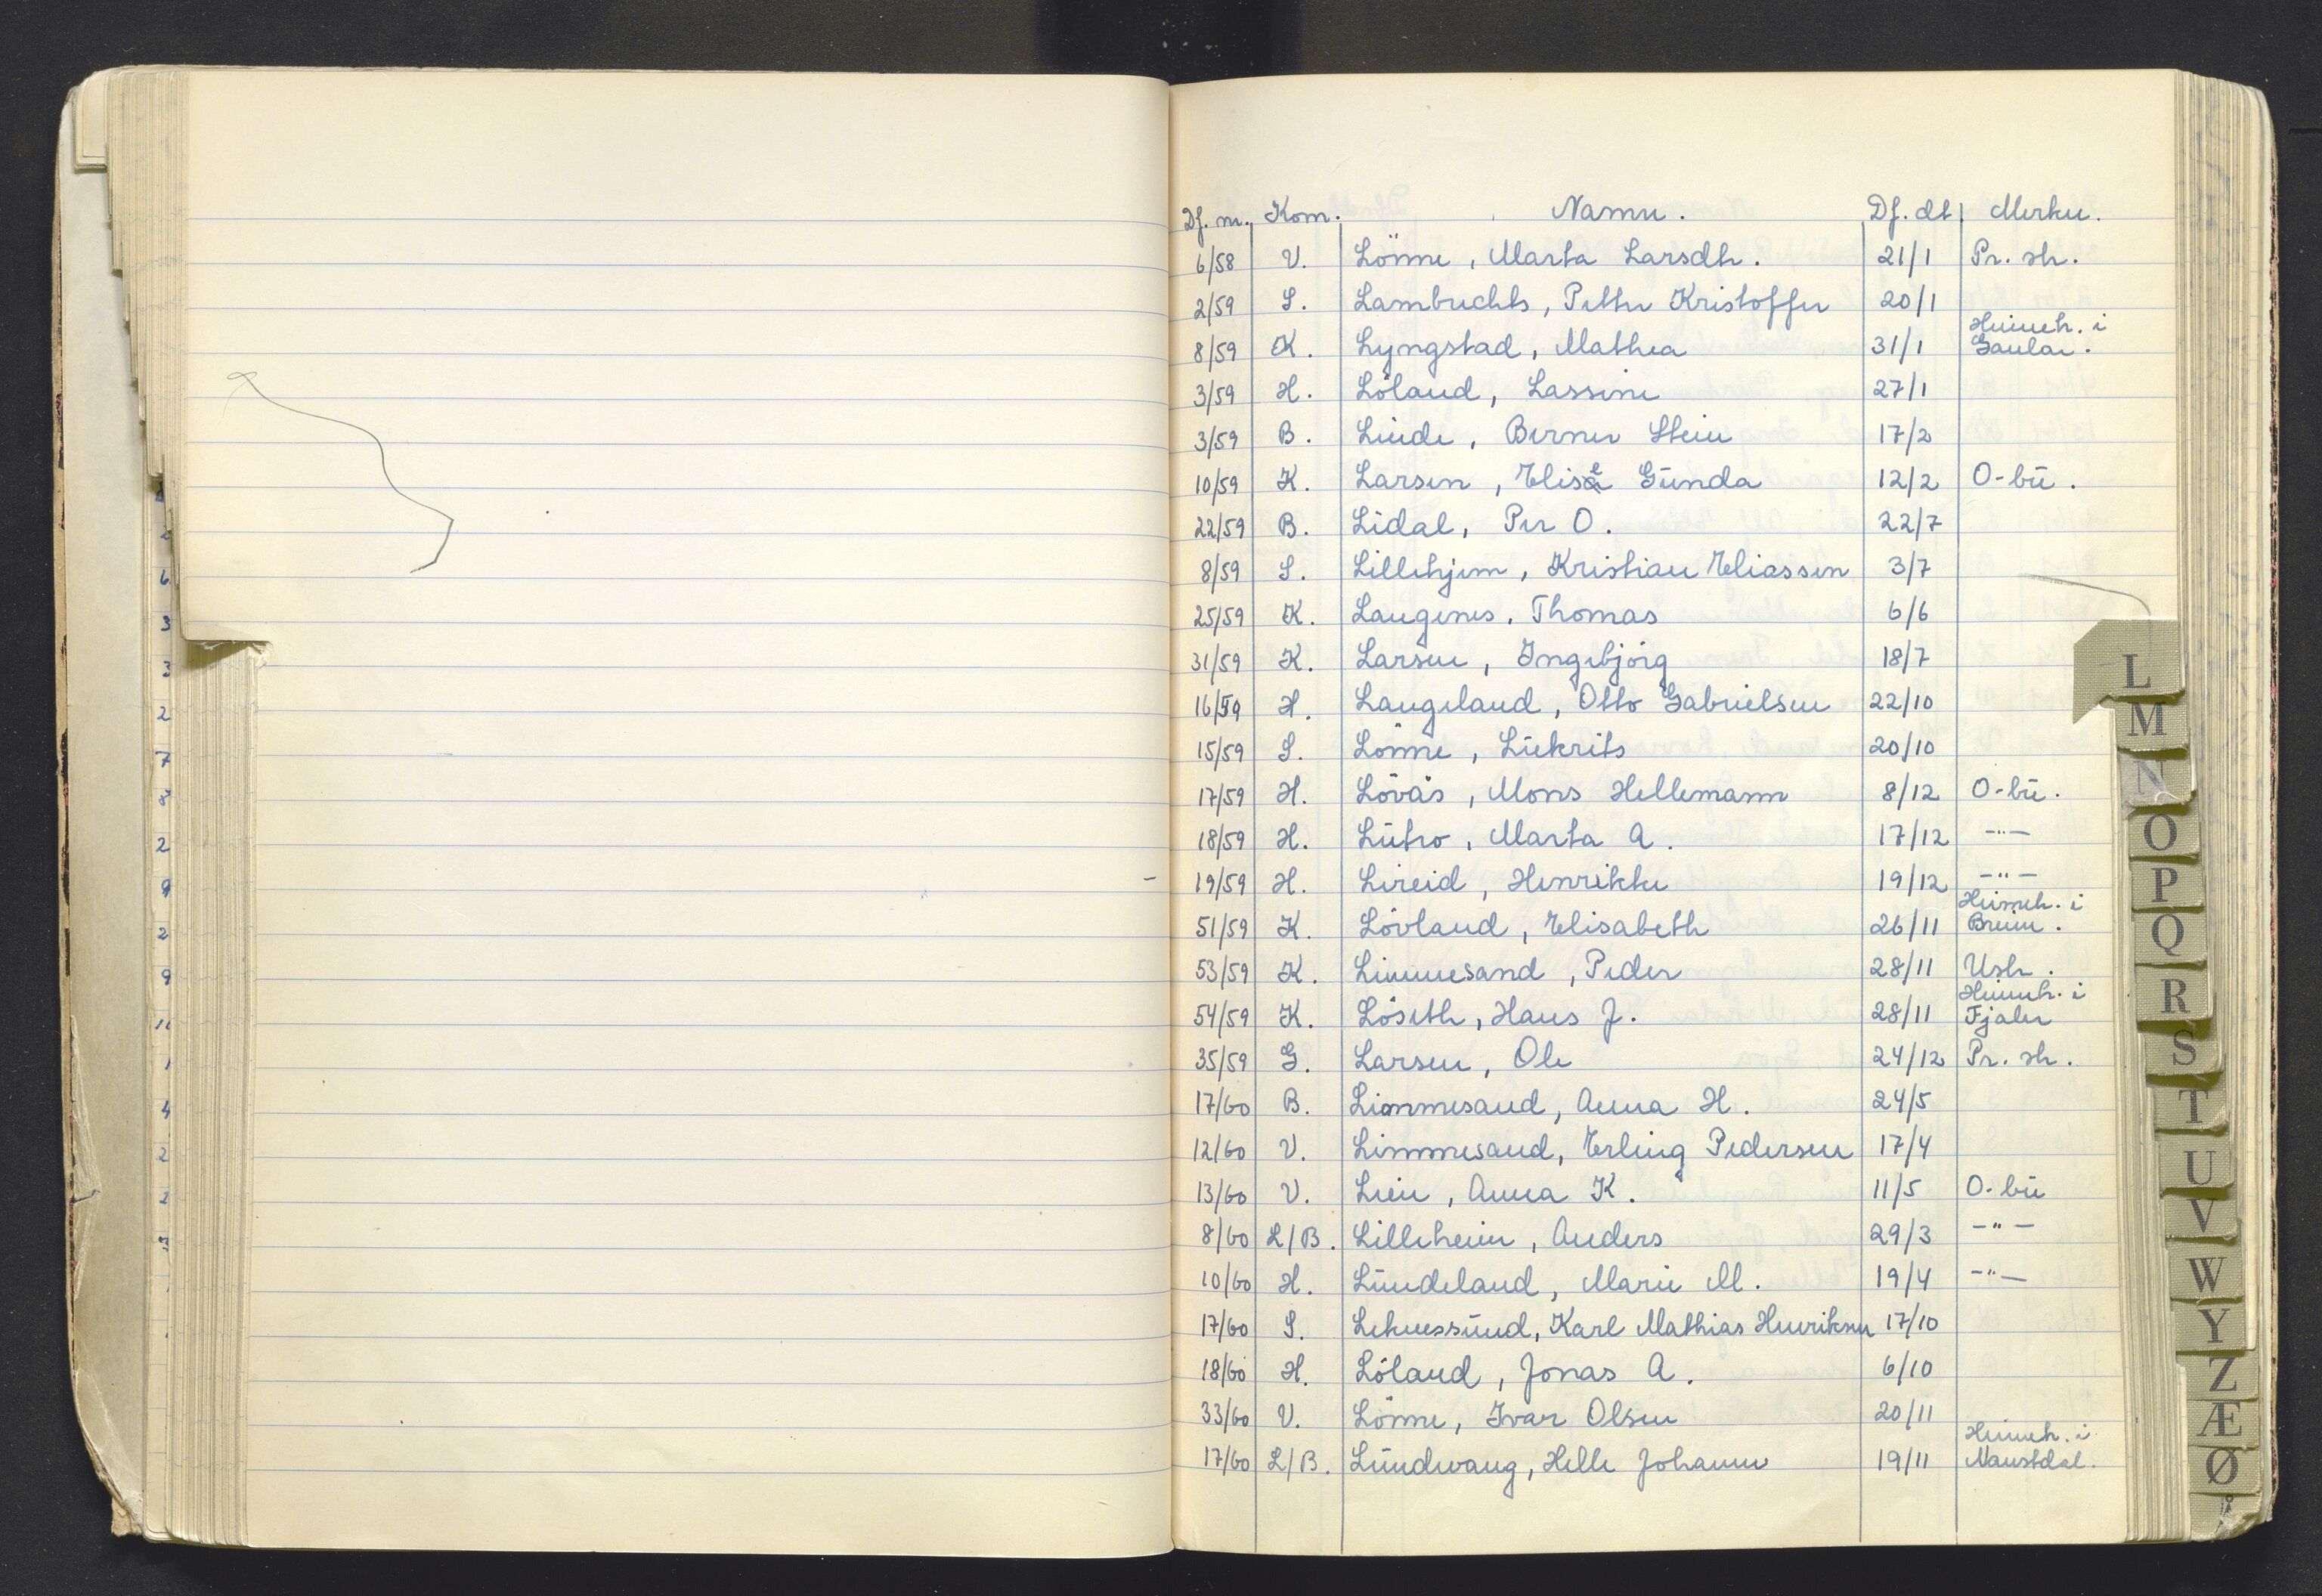 Df. nr. Kom. Namn. Df. dt Merkn.
6/58 V. Lönne, Marta Larsdtr. 21/1 Pr. sk.
2/59 S. Lambrechts, Petter Kristoffer 20/1
8/59 K. Lyngstad, Mathea 31/1 Heimeh. i Gaular.
3/59 H. Löland, Lassine 27/1
3/59 B. Linde, Berner Stein 17/2
10/59 K. Larsen, Elise Gunda 12/2 O-bu.
22/59 B. Lidal, Per O. 22/7
8/59 S. Lillehjem, Kristian Eliassen 3/7
25/59 K. Laugenes, Thomas 6/6
31/59 K. Larsen, Ingebjörg 18/7
16/59 H. Langeland, Otto Gabrielsen 22/10
15/59 S. Lönne, Lukrits 20/10
17/59 H. Lövås, Mons Hellemann 8/12 O-bu.
18/59 H. Lutro, Marta A. 17/12 -"-
19/59 H. Lireid, Henrikke 19/12 -"-
51/59 K. Lövland, Elisabeth 26/11 Heimeh. i Breim.
53/59 K. Limmesand, Peder 28/11 Usk.
54/59 K. Löseth, Hans J. 28/11 Heimeh. i Fjaler
35/59 G. Larsen, Ole 24/12 Pr. sk.
17/60 B. Limmesand, Anna H. 24/5
12/60 V. Limmesand, Erling Pedersen 17/4
13/60 V. Lien, Anna K. 11/5 O-bu
8/60 L/B. Lilleheim, Anders 29/3 -"-
10/60 H. Lundeland, Marie M. 19/4 -"-
17/60 S. Leknessund, Karl Mathias Henriksen 17/10
18/60 H. Löland, Jonas A. 6/10
33/60 V. Lönne, Ivar Olsen 20/11
17/60 L/B. Lundevang, Helle Johanne 19/11 Heimeh. i Naustdal.
L
M
N
O
P
Q
R
S
T
U
V
W
Y
Z
Æ
Ø